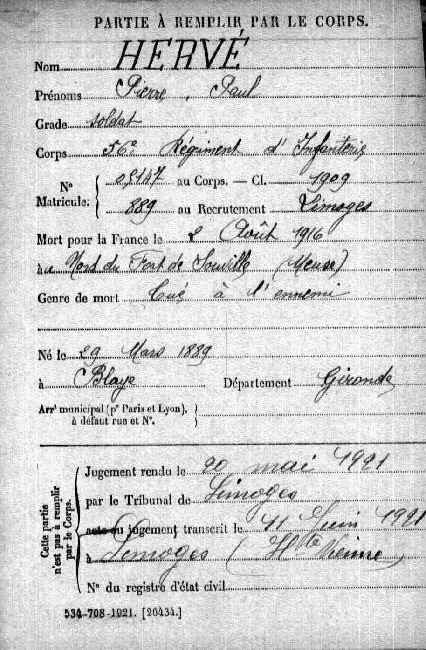 PARTIE À REMPLIR PAR LE CORPS.
Nom HERVÉ
Prénoms Pierre, Paul
Grade soldat
Corps 56e Régiment d'Infanterie
N° Matricule. { 05147 au Corps. — Cl. 1909
889 au Recrutement Limoges
Mort pour la France le 2 Août 1916
à au Nord du Fort de Souville (Meuse)
Genre de mort Tué à l'ennemi
Né le 29 Mars 1889
à Blaye Département Gironde
Arrt municipal (pr Paris et Lyon),
à défaut rue et N°.
Cette partie n'est pas à remplir par le Corps.
Jugement rendu le 20 mai 1921
par le Tribunal de Limoges
acte ou jugement transcrit le 11 Juin 1921
à Limoges (Hte Vienne)
N° du registre d'état civil
534-708-1921. [26434.]